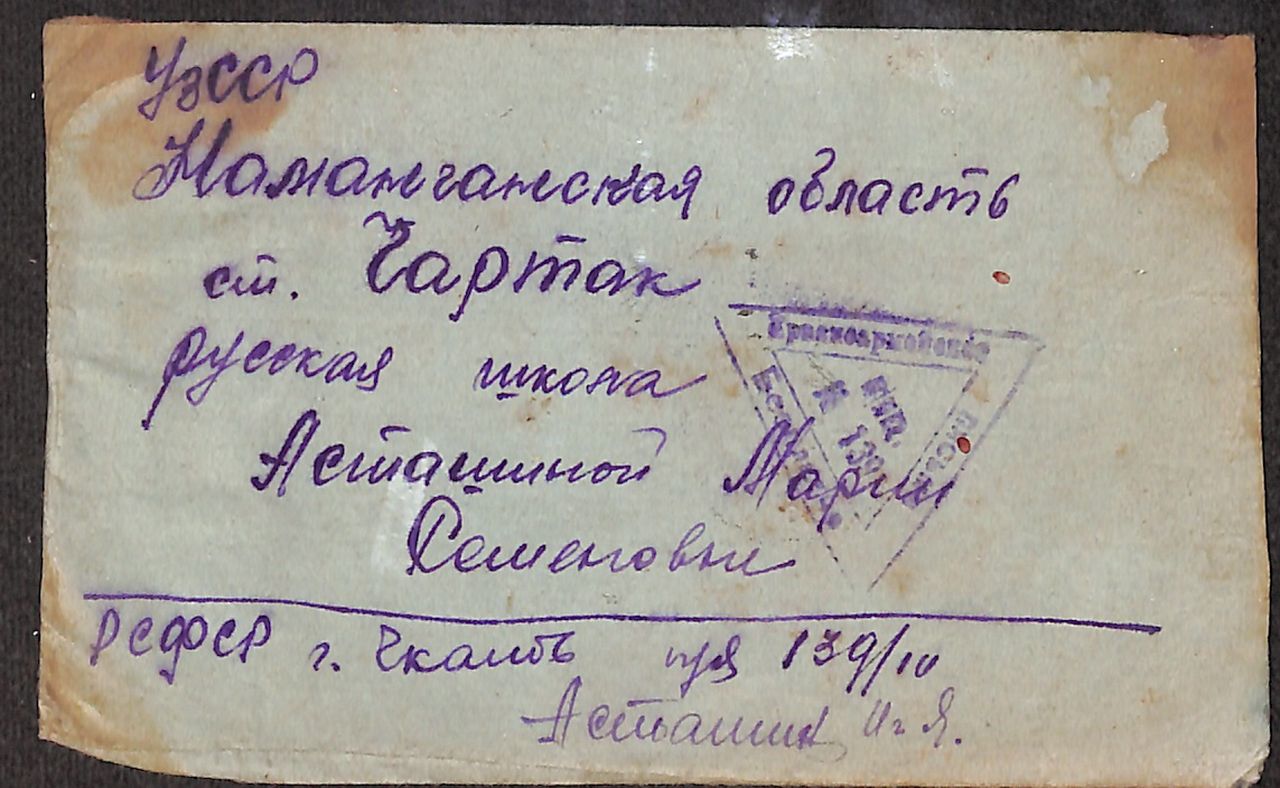 УзССР
Наманганская область
ст. Чартак
русская школа
Асташиной Марии
Семеновне
Красноармейское
№ 139
РСФСР г. Чкалов п/я 139/10
Асташин И. Я.